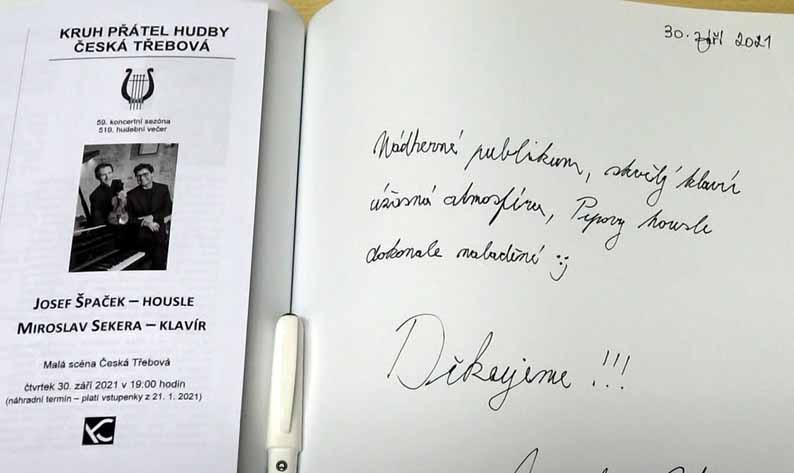 KRUH PŘÁTEL HUDBY
ČESKÁ TŘEBOVÁ
59. koncertní sezóna
519. hudební večer
JOSEF ŠPAČEK – HOUSLE
MIROSLAV SEKERA – KLAVÍR
Malá scéna Česká Třebová
čtvrtek 30. září 2021 v 19:00 hodin
(náhradní termín – platí vstupenky z 21. 1. 2021)
30. září 2021
Nádherné publikum, skvělý klavír
úžasná atmosféra, Pepovy housle
dokonale naladěné :)
Děkujeme !!!